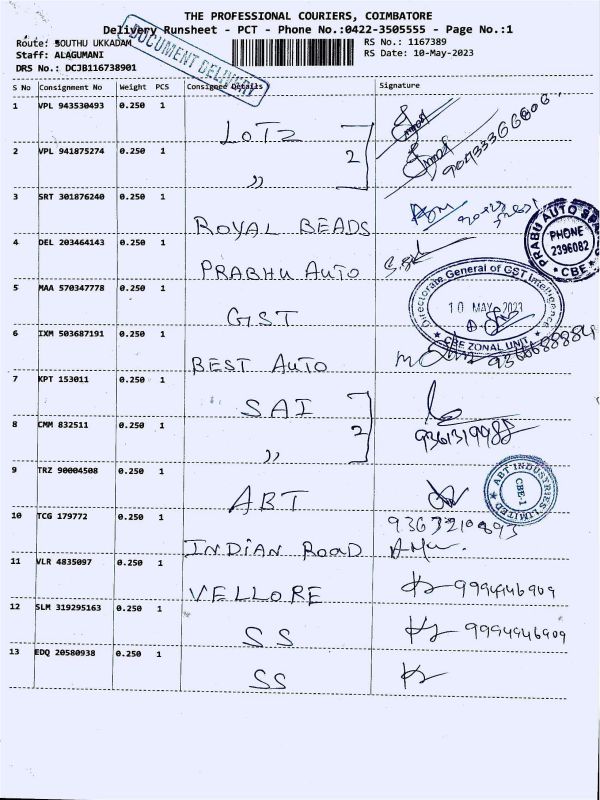 THE PROFESSIONAL COURIERS, COIMBATORE
Delivery Runsheet - PCT - Phone No.:0422-3505555 - Page No.:1
Route: SOUTHU UKKADAM
RS No.: 1167389
Staff: ALAGUMANI
RS Date: 10-May-2023
DRS No.: DCJB116738901
DOCUMENT DELIVERY
S No Consignment No Weight PCS Consignee Details Signature
1 VPL 943530493 0.250 1 LOTZ
2 VPL 941875274 0.250 1 ,, 2
3 SRT 301876240 0.250 1 ROYAL BEADS
4 DEL 203464143 0.250 1 PRABHU AUTO
PRABU AUTO
PHONE
2396082
CBE
5 MAA 570347778 0.250 1 GST
Directorate General of GST Intelligence
10 MAY 2023
CBE ZONAL UNIT
6 IXM 503687191 0.250 1 BEST AUTO
7 KPT 153011 0.250 1 SAI
8 CMM 832511 0.250 1 ,, 2 9361319988
9 TRZ 90004508 0.250 1 ABT
ABT INDUSTRIES LIMITED
CBE-1
10 TCG 179772 0.250 1 INDIAN ROAD 9363210893
11 VLR 4835097 0.250 1 VELLORE 9994946909
12 SLM 319295163 0.250 1 SS 9994946909
13 EDQ 20580938 0.250 1 SS